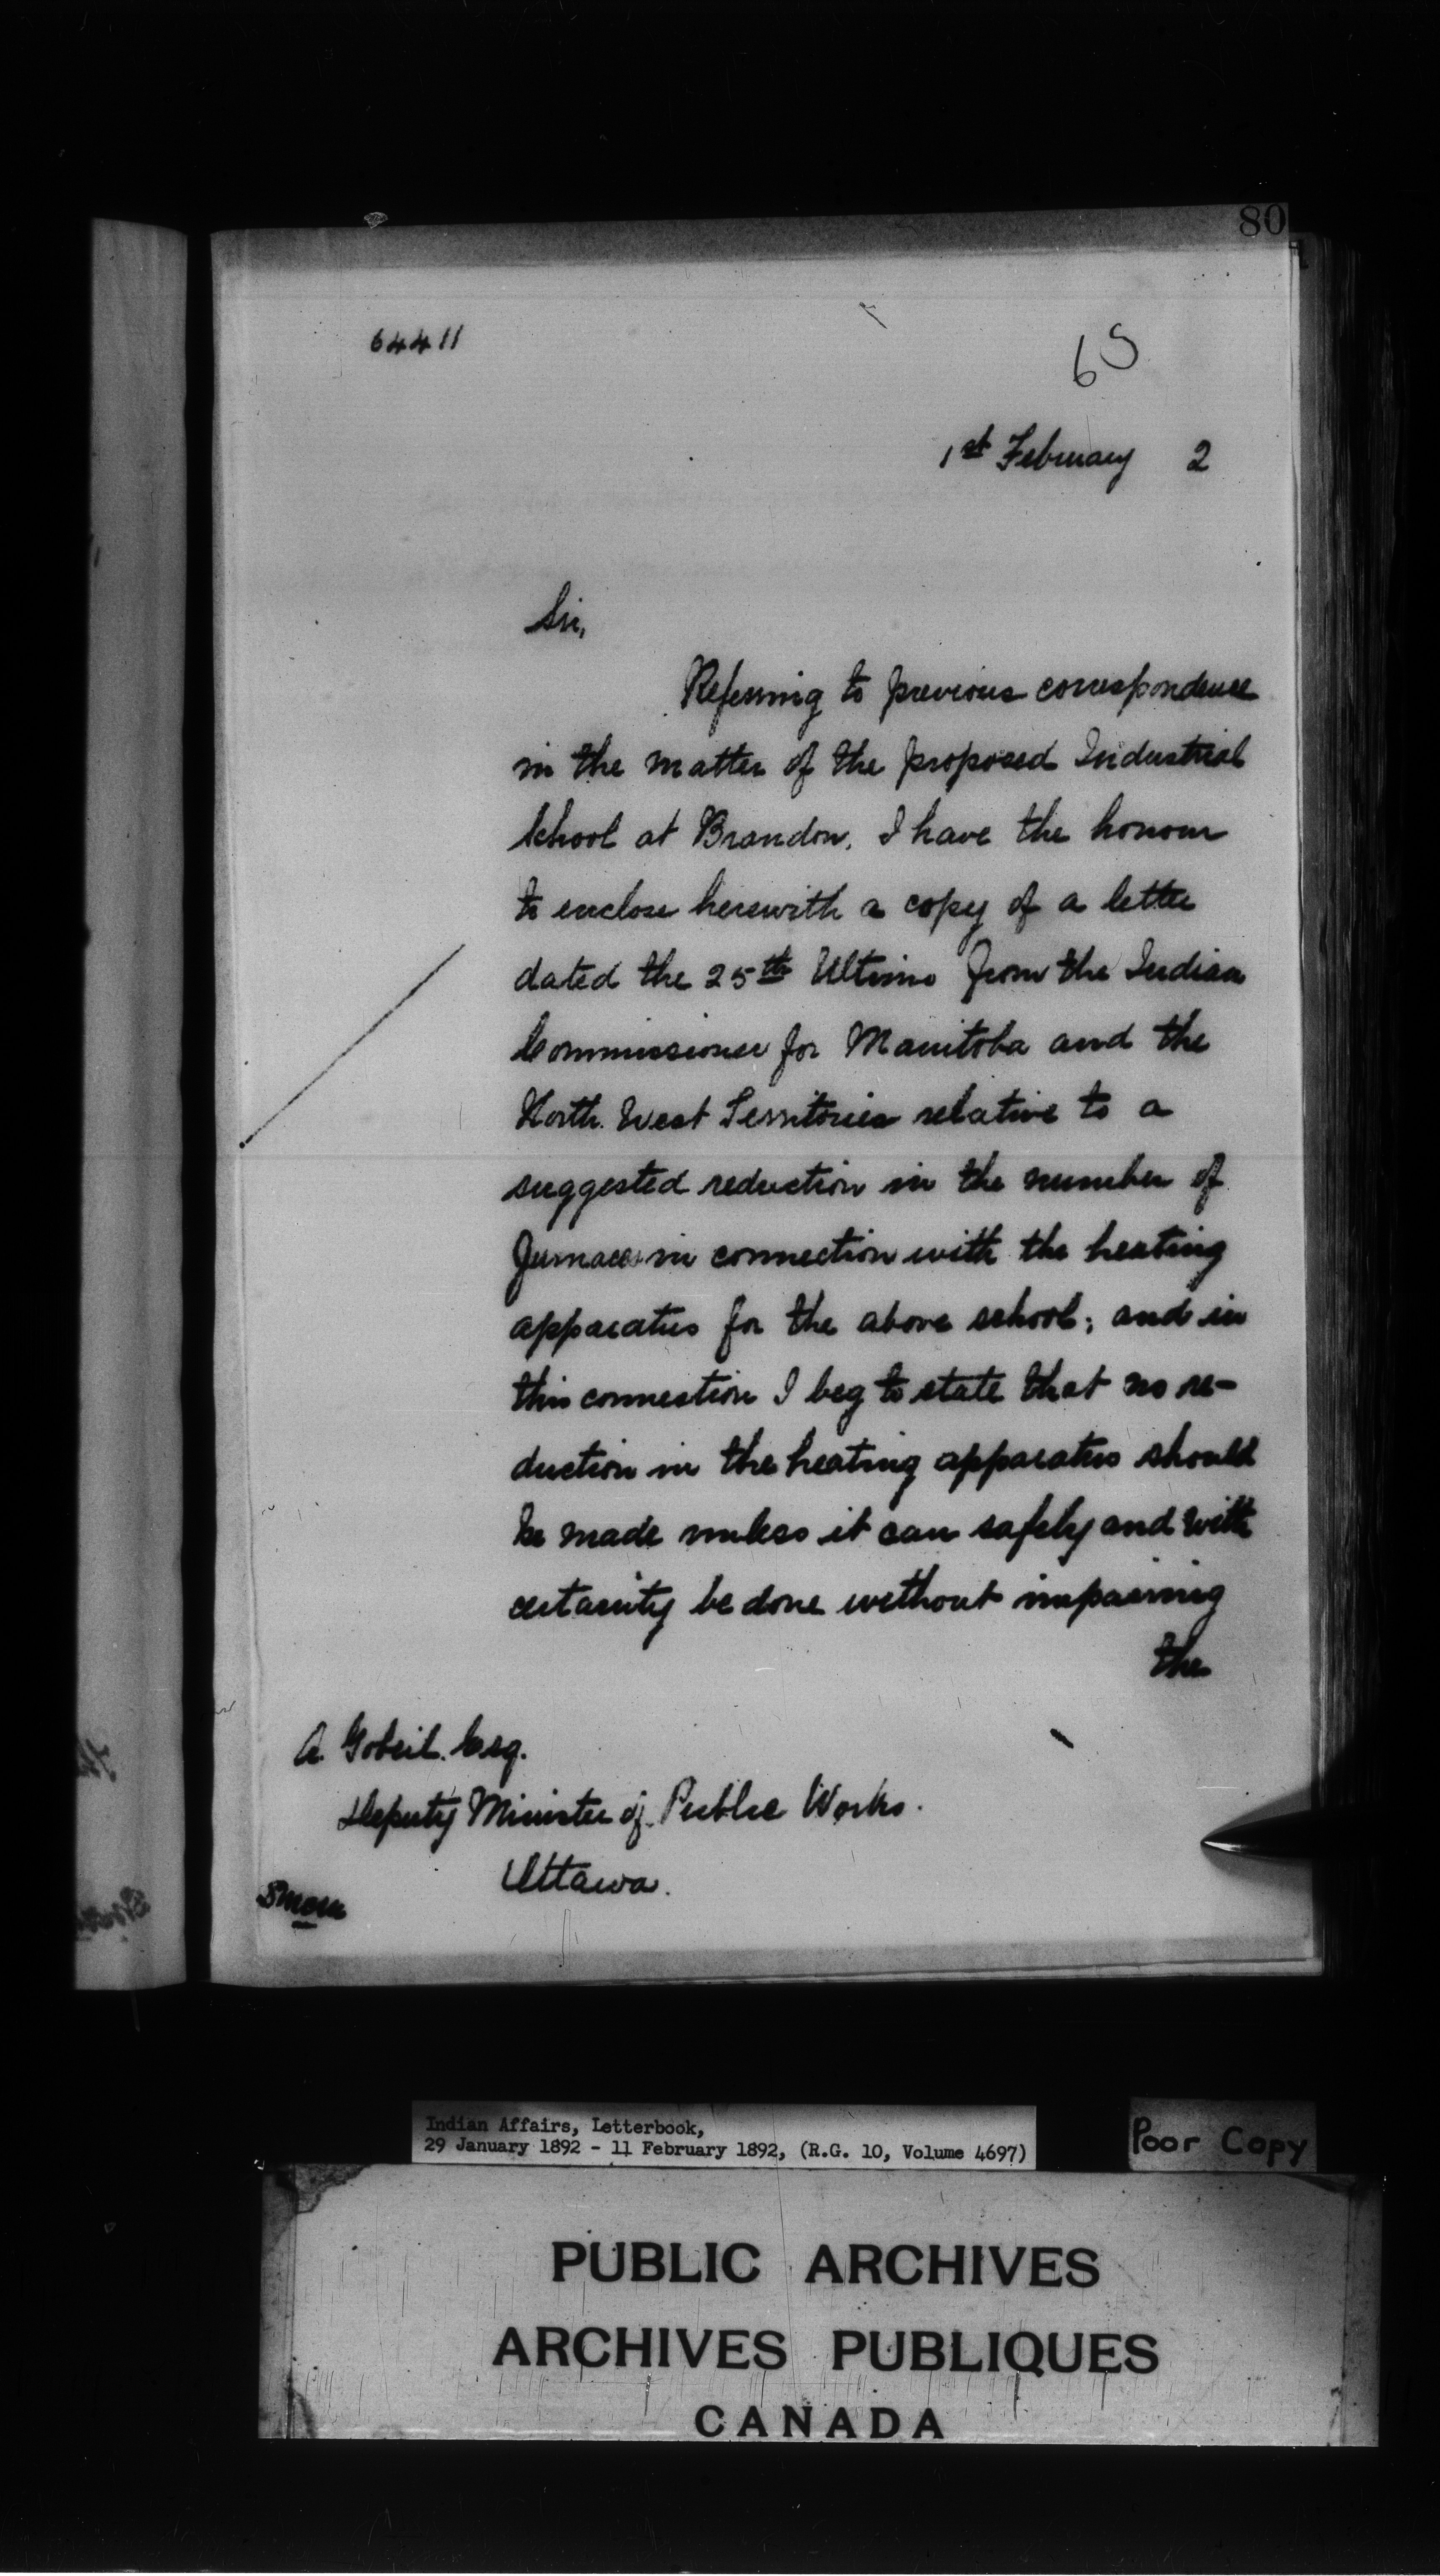 80
64411
65
1st February 2
Sir,
Referring to previous correspondence
in the matter of the proposed Industrial
School at Brandon, I have the honour
to enclose herewith a copy of a letter
dated the 25th Ultimo from the Indian
Commissioner for Manitoba and the
North West Territories relative to a
suggested reduction in the number of
furnaces in connection with the heating
apparatus for the above school; and in
this connection I beg to state that no re-
duction in the heating apparatus should
be made unless it can safely and with
certainty be done without impairing
the
A. Gobeil. Esq.
Deputy Minister of Public Works.
Ottawa.
Indian Affairs, Letterbook,
29 January 1892 - 11 February 1892, (R.G. 10, Volume 4697)
Poor Copy
PUBLIC ARCHIVES
ARCHIVES PUBLIQUES
CANADA